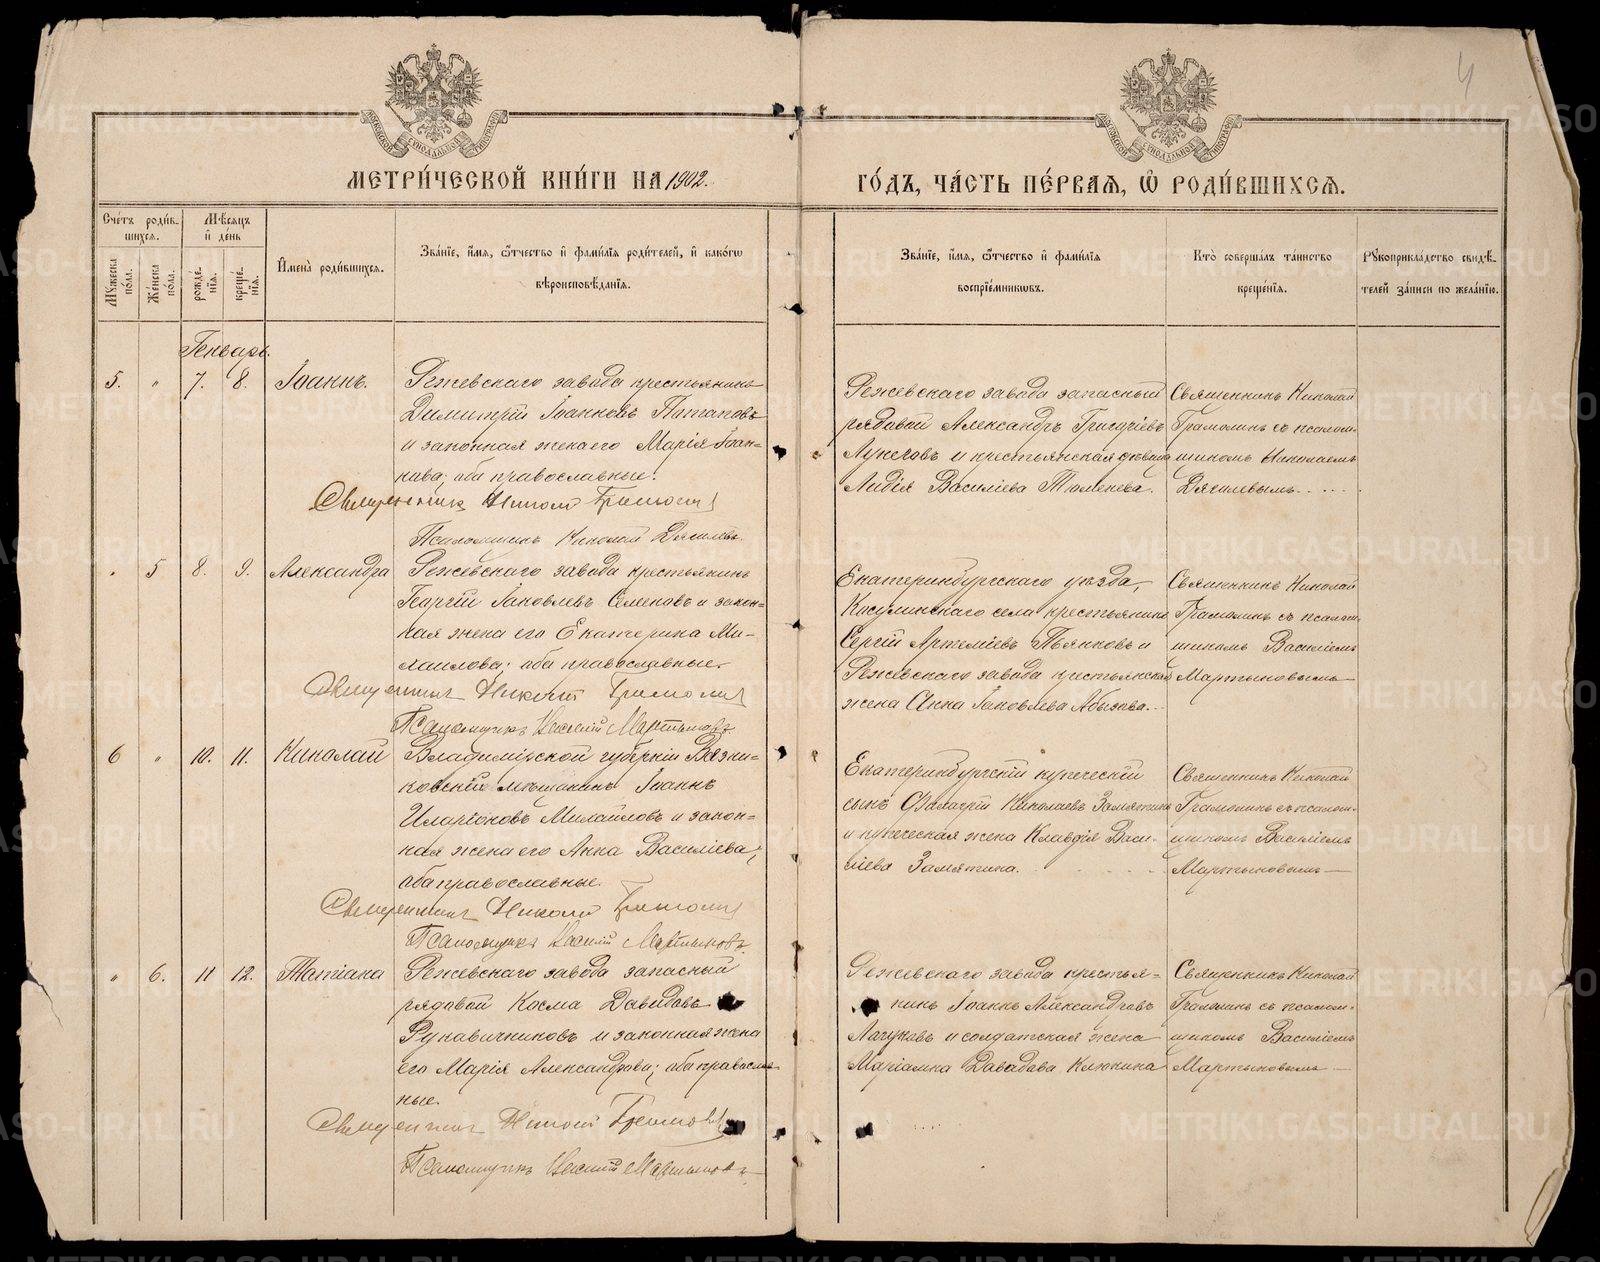 4
МОСКОВСКОЙ СѴНОДАЛЬНОЙ ТИПОГРАФІИ
МОСКОВСКОЙ СѴНОДАЛЬНОЙ ТИПОГРАФІИ
МЕТРИ́ЧЕСКОЙ КНИ́ГИ НА 1902.
ГО́ДЪ, ЧА́СТЬ ПЕ́РВАЯ, Ѽ РОДИ́ВШИХСЯ.
Сче́тъ роди́в-
шихся.
Мѣ́сяцъ
и҆ де́нь
Мꙋ́жеска по́ла.
Же́нска по́ла.
рожде́-нїѧ.
креще́-нїѧ.
И҆мена̀ роди́вшихся.
Зва́нїе, и҆́мѧ, ѻ҆́тчество и҆ фами́лїѧ роди́телей, и҆ како́гѡ
вѣроисповѣ́данїѧ.
Зва́нїе, и҆́мѧ, ѻ҆́тчество и҆ фами́лїѧ
воспрїе́мникѡвъ.
Кто̀ соверша́лъ та́инство
креще́нїѧ.
Рꙋкоприкла́дство свидѣ́-
телей за́писи по жела́нїю.
Генварь.
5. " 7. 8. Іоаннъ.
Режевскаго завода крестьянинъ
Димитрій Іоанновъ Потаповъ
и законная жена его Марія Іоан-
нова; оба православные.
Священникъ Николай Грамолин
Псаломщикъ Николай Дягилевъ.
Режевскаго завода запасный
рядовой Александръ Григорьевъ
Лукеговъ и крестьянская девица
Лидія Василіева Тюменева.
Священникъ Николай
Грамолинъ съ псалом-
щикомъ Николаемъ
Дягилевымъ......
" 5 8. 9. Александра
Режевскаго завода крестьянинъ
Георгій Іаковлевъ Семеновъ и закон-
ная жена его Екатерина Ми-
хаилова; оба православные.
Священник Николай Грамолин
Псаломщикъ Василій Мартыновъ
Екатеринбургскаго уѣзда,
Косулинскаго села крестьянинъ
Сергій Артеміевъ Пьянковъ и
Режевскаго завода крестьянская
жена Анна Іаковлева
Священникъ Николай
Грамолинъ съ псалом-
щикомъ Василіемъ
Мартыновымъ
6 " 10. 11. Николай
Владимірской губерніи Вязни-
ковскій мѣщанинъ Іоаннъ
Иларіоновъ Михайловъ и закон-
ная жена его Анна Василіева,
оба православные.
Священник Николай Грамолин
Псаломщикъ Василій Мартыновъ.
Екатеринбургскій купеческій
сынъ Валерій Николаевъ Замятинъ
и купеческая жена Клавдія Васи-
ліева Замятина.
Священникъ Николай
Грамолинъ съ псалом-
щикомъ Василіемъ
Мартыновымъ
" 6. 11 12. Татіана
Режевскаго завода запасный
рядовой Косма Давидовъ
Рукавичниковъ и законная жена
его Марія Александрова; оба православ-
ные.
Священник Николай Грамолин
Псаломщикъ Василій Мартыновъ
Режевскаго завода крестья-
нинъ Іоаннъ Александровъ
Лагуновъ и солдатская жена
Маріамна Давидова Клюкина
Священникъ Николай
Грамолинъ съ псалом-
щикомъ Василіемъ
Мартыновымъ
METRIKI.GASO-URAL.RU